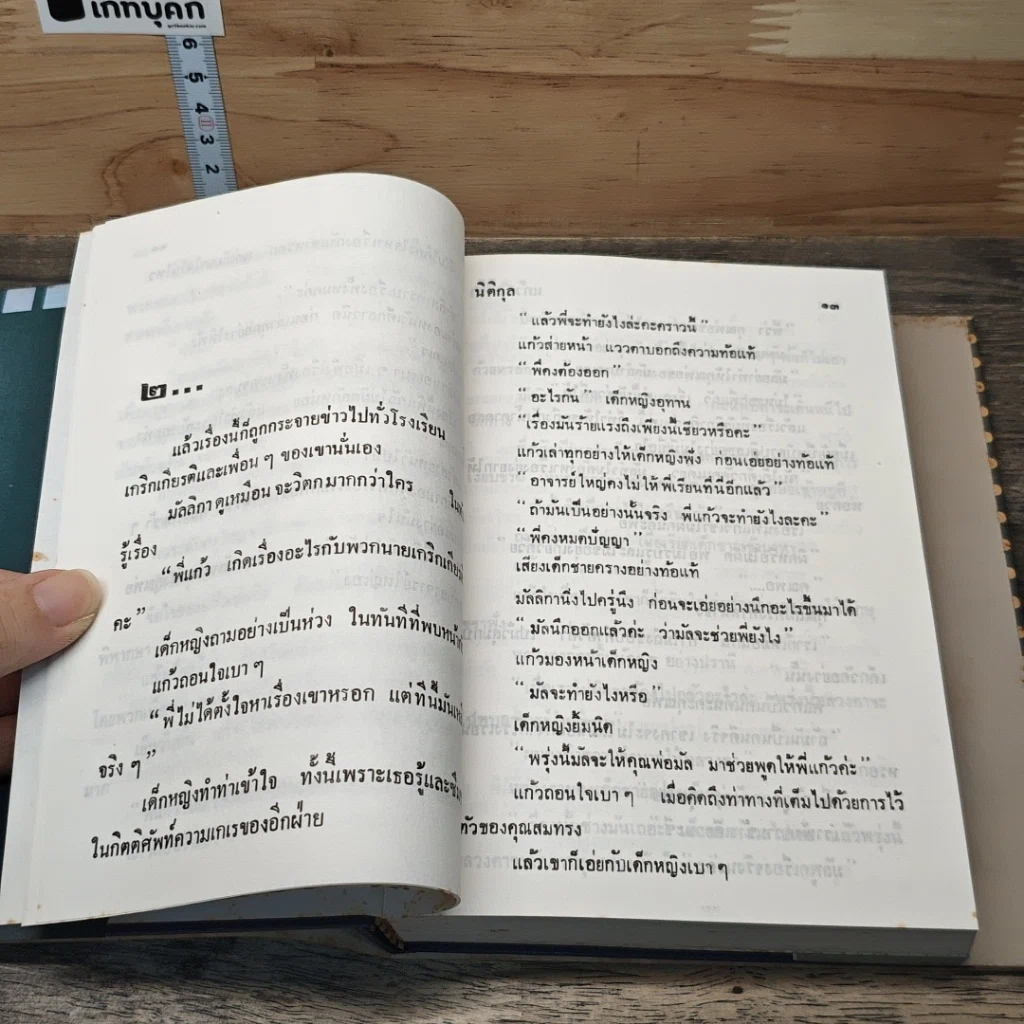 เก็ทบุคกี้
6
5
4
3
2
๒...
แล้วเรื่องนี้ก็ถูกกระจายข่าวไปทั่วโรงเรียน
เกริกเกียรติและเพื่อน ๆ ของเขานั่นเอง
มัลลิกา ดูเหมือน จะวิตก มากกว่าใคร
รู้เรื่อง
“พี่แก้ว เกิดเรื่องอะไรกับพวกนายเกริกเกียรติ
คะ”
เด็กหญิงถามอย่างเป็นห่วง ในทันทีที่พบหน้า
แก้วถอนใจเบา ๆ
“พี่ไม่ได้ตั้งใจหาเรื่องเขาหรอก แต่ ที่นี้มัน
จริง ๆ”
เด็กหญิงทำท่าเข้าใจ ทั้งนี้เพราะเธอรู้และ
ในกิตติศัพท์ความเกเรของอีกฝ่าย
นิติกุล
๑๓
“แล้วพี่จะทำยังไงล่ะคะคราวนี้”
แก้วส่ายหน้า แววตาบอกถึงความท้อแท้
“พี่คงต้องออก”
“อะไรกัน” เด็กหญิงอุทาน
“เรื่องมันร้ายแรงถึงเพียงนี้เชียวหรือคะ”
แก้วเล่าทุกอย่างให้เด็กหญิงฟัง ก่อนเอ่ยอย่างท้อแท้
“อาจารย์ใหญ่คงไม่ให้พี่เรียนที่นี่อีกแล้ว”
“ถ้ามันเป็นอย่างนั้นจริง พี่แก้วจะทำยังไงละคะ”
“พี่คงหมดปัญญา”
เสียงเด็กชายครางอย่างท้อแท้
มัลลิกานิ่งไปครู่นึง ก่อนจะเอ่ยอย่างนึกอะไรขึ้นมาได้
“มัลนึกออกแล้วค่ะ ว่ามัลจะช่วยพี่ยังไง”
แก้วมองหน้าเด็กหญิง
“มัลจะทำยังไงหรือ”
เด็กหญิงยิ้มนิด
“พรุ่งนี้มัลจะให้คุณพ่อมัล มาช่วยพูดให้พี่แก้วค่ะ”
แก้วถอนใจเบา ๆ เมื่อคิดถึงท่าทางที่เต็มไปด้วยการไว้
ตัวของคุณสมทรง
แล้วเขาก็เอ่ยกับเด็กหญิงเบา ๆ